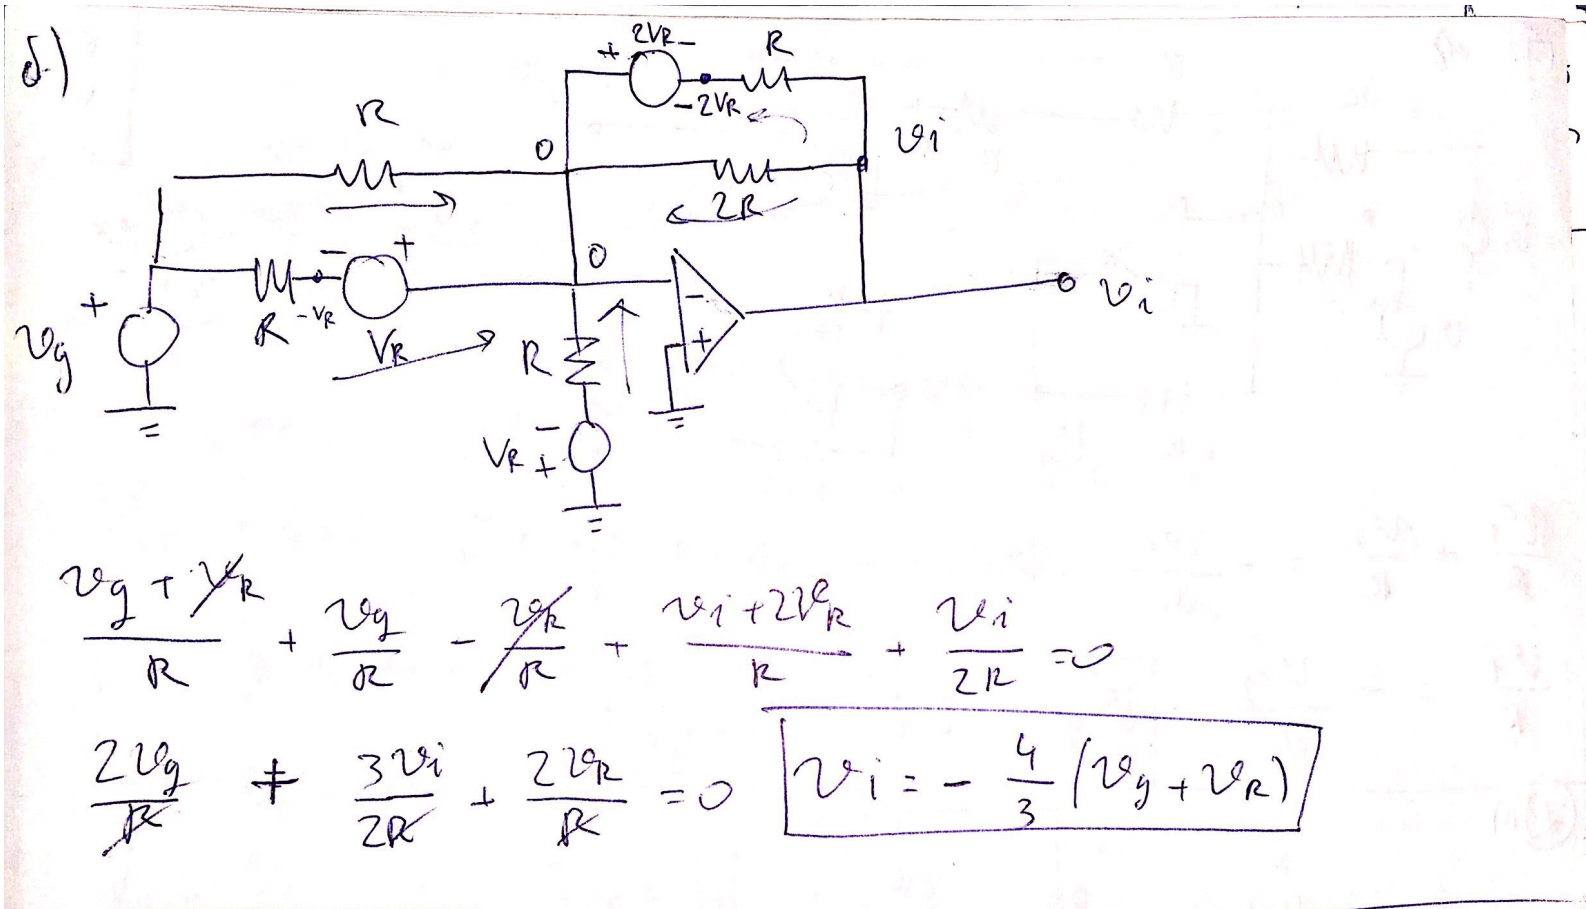 б)
+ 2VR -
R
-2VR
R
0
vi
2R
0
- +
+
vg
R
-VR
VR
R
-
+
vi
VR
-
+
(vg + VR)/R + vg/R - vR/R + (vi + 2VR)/R + vi/2R = 0
2vg/R + 3vi/2R + 2vR/R = 0
vi = - 4/3 (vg + vR)